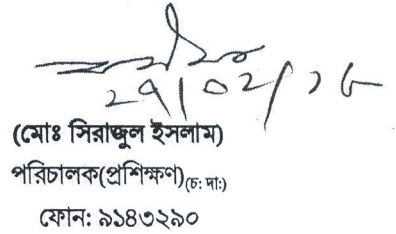 ২৭/০২/১৮
(মোঃ সিরাজুল ইসলাম)
পরিচালক(প্রশিক্ষণ)(চ: দা:)
ফোন: ৯১৪৩২৯০